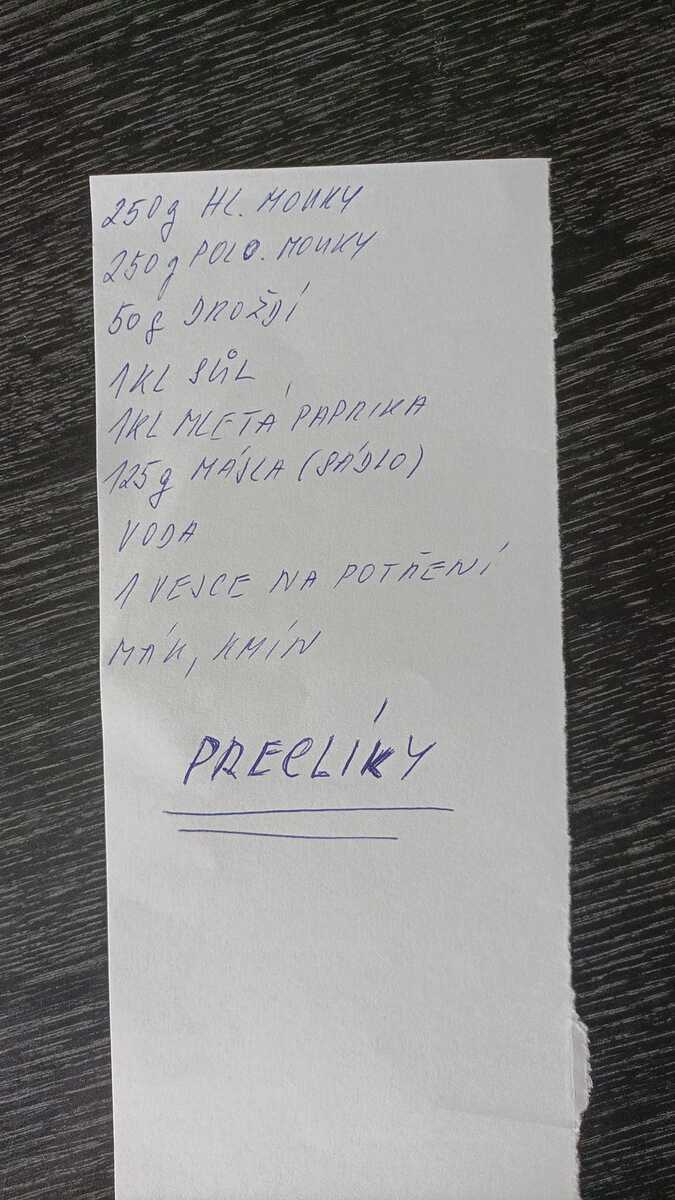 250g HL. MOUKY
250g POLO. MOUKY
50g DROŽDÍ
1KL SŮL
1KL MLETÁ PAPRIKA
125g MÁSLA (SÁDLO)
VODA
1 VEJCE NA POTŘENÍ
MÁK, KMÍN
PRECLÍKY